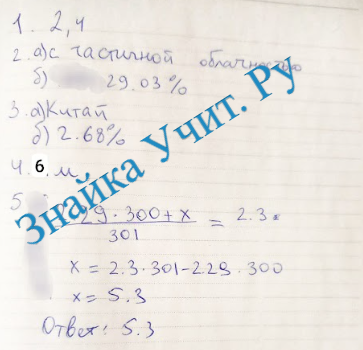 1. 2,4
2. а) с частичной облачностью
б) 29.03%
3. а) Китай
б) 2.68%
4. 6 м
5
29 · 300 + x / 301 = 2.3
x = 2.3 · 301 - 2.29 · 300
x = 5.3
Ответ: 5.3
Знайка Учит. Ру